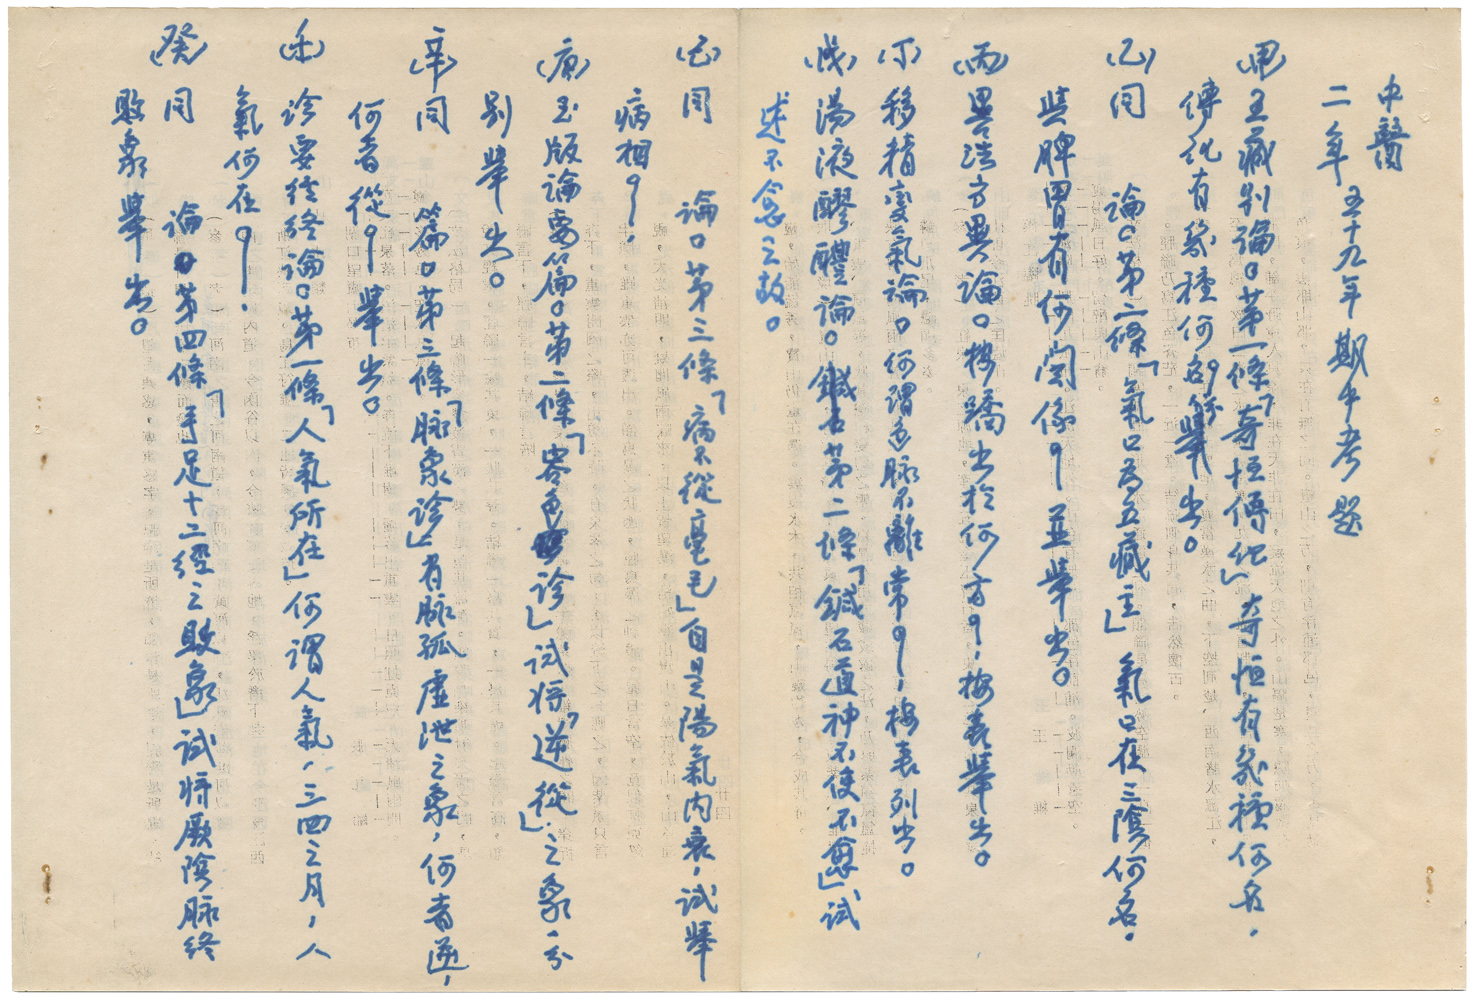 中醫
二年　五十九年期中考題
(甲)五藏別論。第一條「奇恒傳化」奇恒有幾種何名，
傳化有幾種何名份舉出。
(乙)同　論。第二條「氣口為五藏主」氣口在三陰何名。
與脾胃有何関係？並舉出。
(丙)異法方異論。按蹻出於何方？，按表舉出。
(丁)移精变氣論。何謂色脉不離常？，按表列出。
(戊)湯液醪醴論。鍼石第二條「鍼石道神不使不愈」試
述不愈之故。
(己)同　論。第三條「病不從毫毛」自是陽氣内衰，試舉
病相？，
(庚)玉版論要篇。第二條「容色診」試将「逆從」之象，分
別舉出。
(辛)同　篇。第三條「脉象診」有脉孤虛泄之象，何者逆，
何者從？舉出。
(壬)診要經終論。第一條「人氣所在」何謂人氣，三四之月，人
氣何在？，
(癸)同　論。第四條「手足十二經之敗象」試将厥陰脉終
敗象舉出。